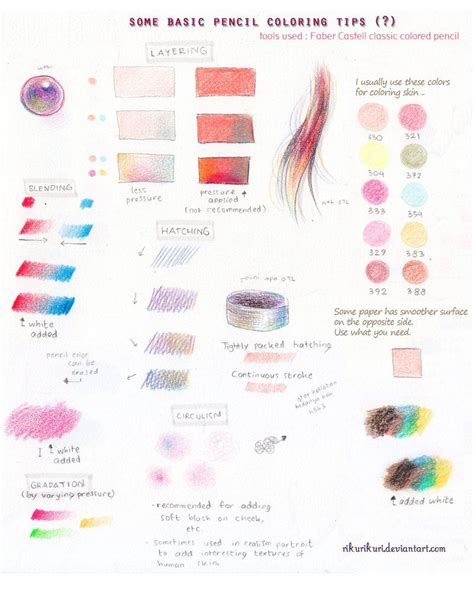 SOME BASIC PENCIL COLORING TIPS (?)
tools used : Faber Castell classic colored pencil
LAYERING
less
pressure
pressure
applied
(not recommended)
I usually use these colors
for coloring skin ..
330
321
304
372
333
354
329
353
392
388
Some paper has smoother surface
on the opposite side.
Use what you need.
BLENDING
white
added
pencil color
can be
erased
white
added
GRADATION
(by varying pressure)
HATCHING
Tightly packed hatching
Continuous stroke
CIRCULISM
- recommended for adding
soft blush on cheek,
etc.
- sometimes used in realism portrait
to add interesting textures of
human skin.
added white
rikurikuri.deviantart.com